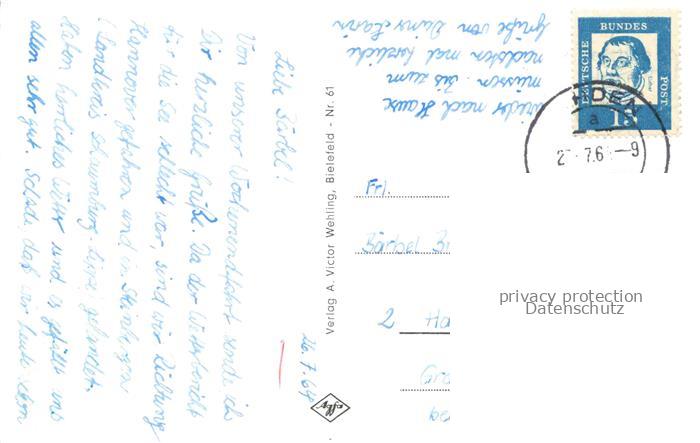 Liebe Bärbel!
Von unserer Wochenendfahrt sende ich
Dir herzliche Grüße. Da der Wetterbericht
für die See schlecht war, sind wir Richtung
Hannover gefahren und in Steinbergen
(Landkreis Schaumburg-Lippe) gelandet.
Haben herrliches Wetter und es gefällt uns
allen sehr gut. Schade, daß wir heute schon
wieder nach Hause
müssen. Bis zum
nächsten mal herzliche
Grüße von Deiner Karin
26.7.64
Verlag A. Victor Wehling, Bielefeld - Nr. 61
Agfa
DEUTSCHE
BUNDES
POST
15
a
Frl.
Bärbel
2
privacy protection
Datenschutz